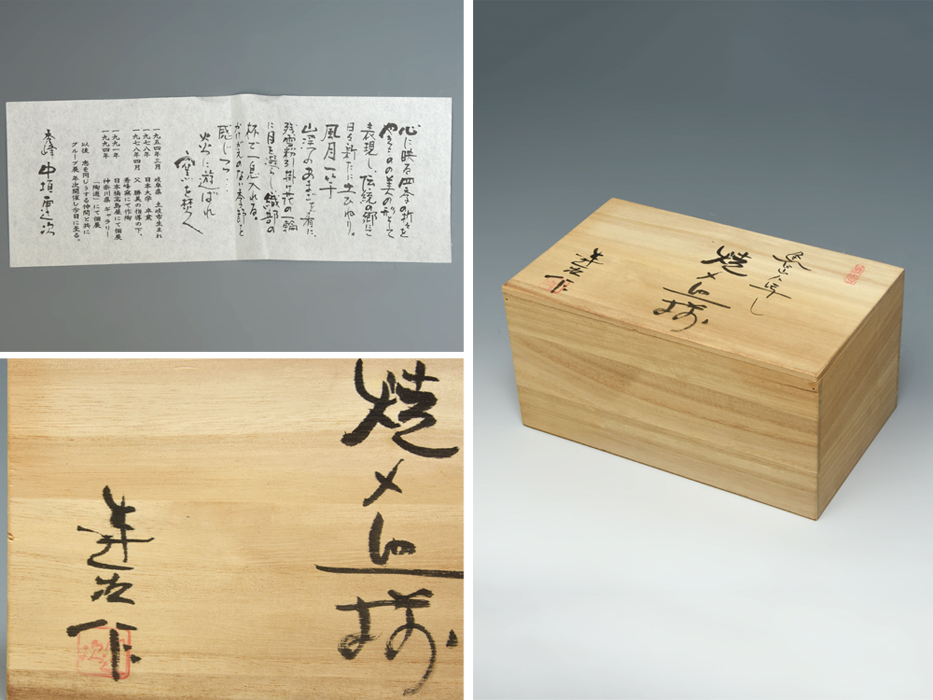 心に映る四季の折々を
やきものの美の形として
表現し、伝統の郷にて
日々新たに土ひねり。
風月一竿
残雪粉引掛け花の一輪
に目を遊らし織部の
杯で一息入れる。
かけがえのない季節を
感じつつ…
炎に遊ばれ
窯を焚く
一九五四年三月 岐阜県 土岐市生まれ
一九七八年 日本大学 卒業
一九七八年四月 父 勝美の指導の下、
秀峰窯にて作陶
一九九一年 日本橋高島屋にて個展
一九九四年 神奈川県 ギャラリー
「陶遊」にて個展
以後 志を同じうする仲間と共に
グループ展 年次開催し今日に至る。
秀峰 中垣 連次
魯山人写し
焼〆皿揃
連次作
焼〆皿揃
連次作